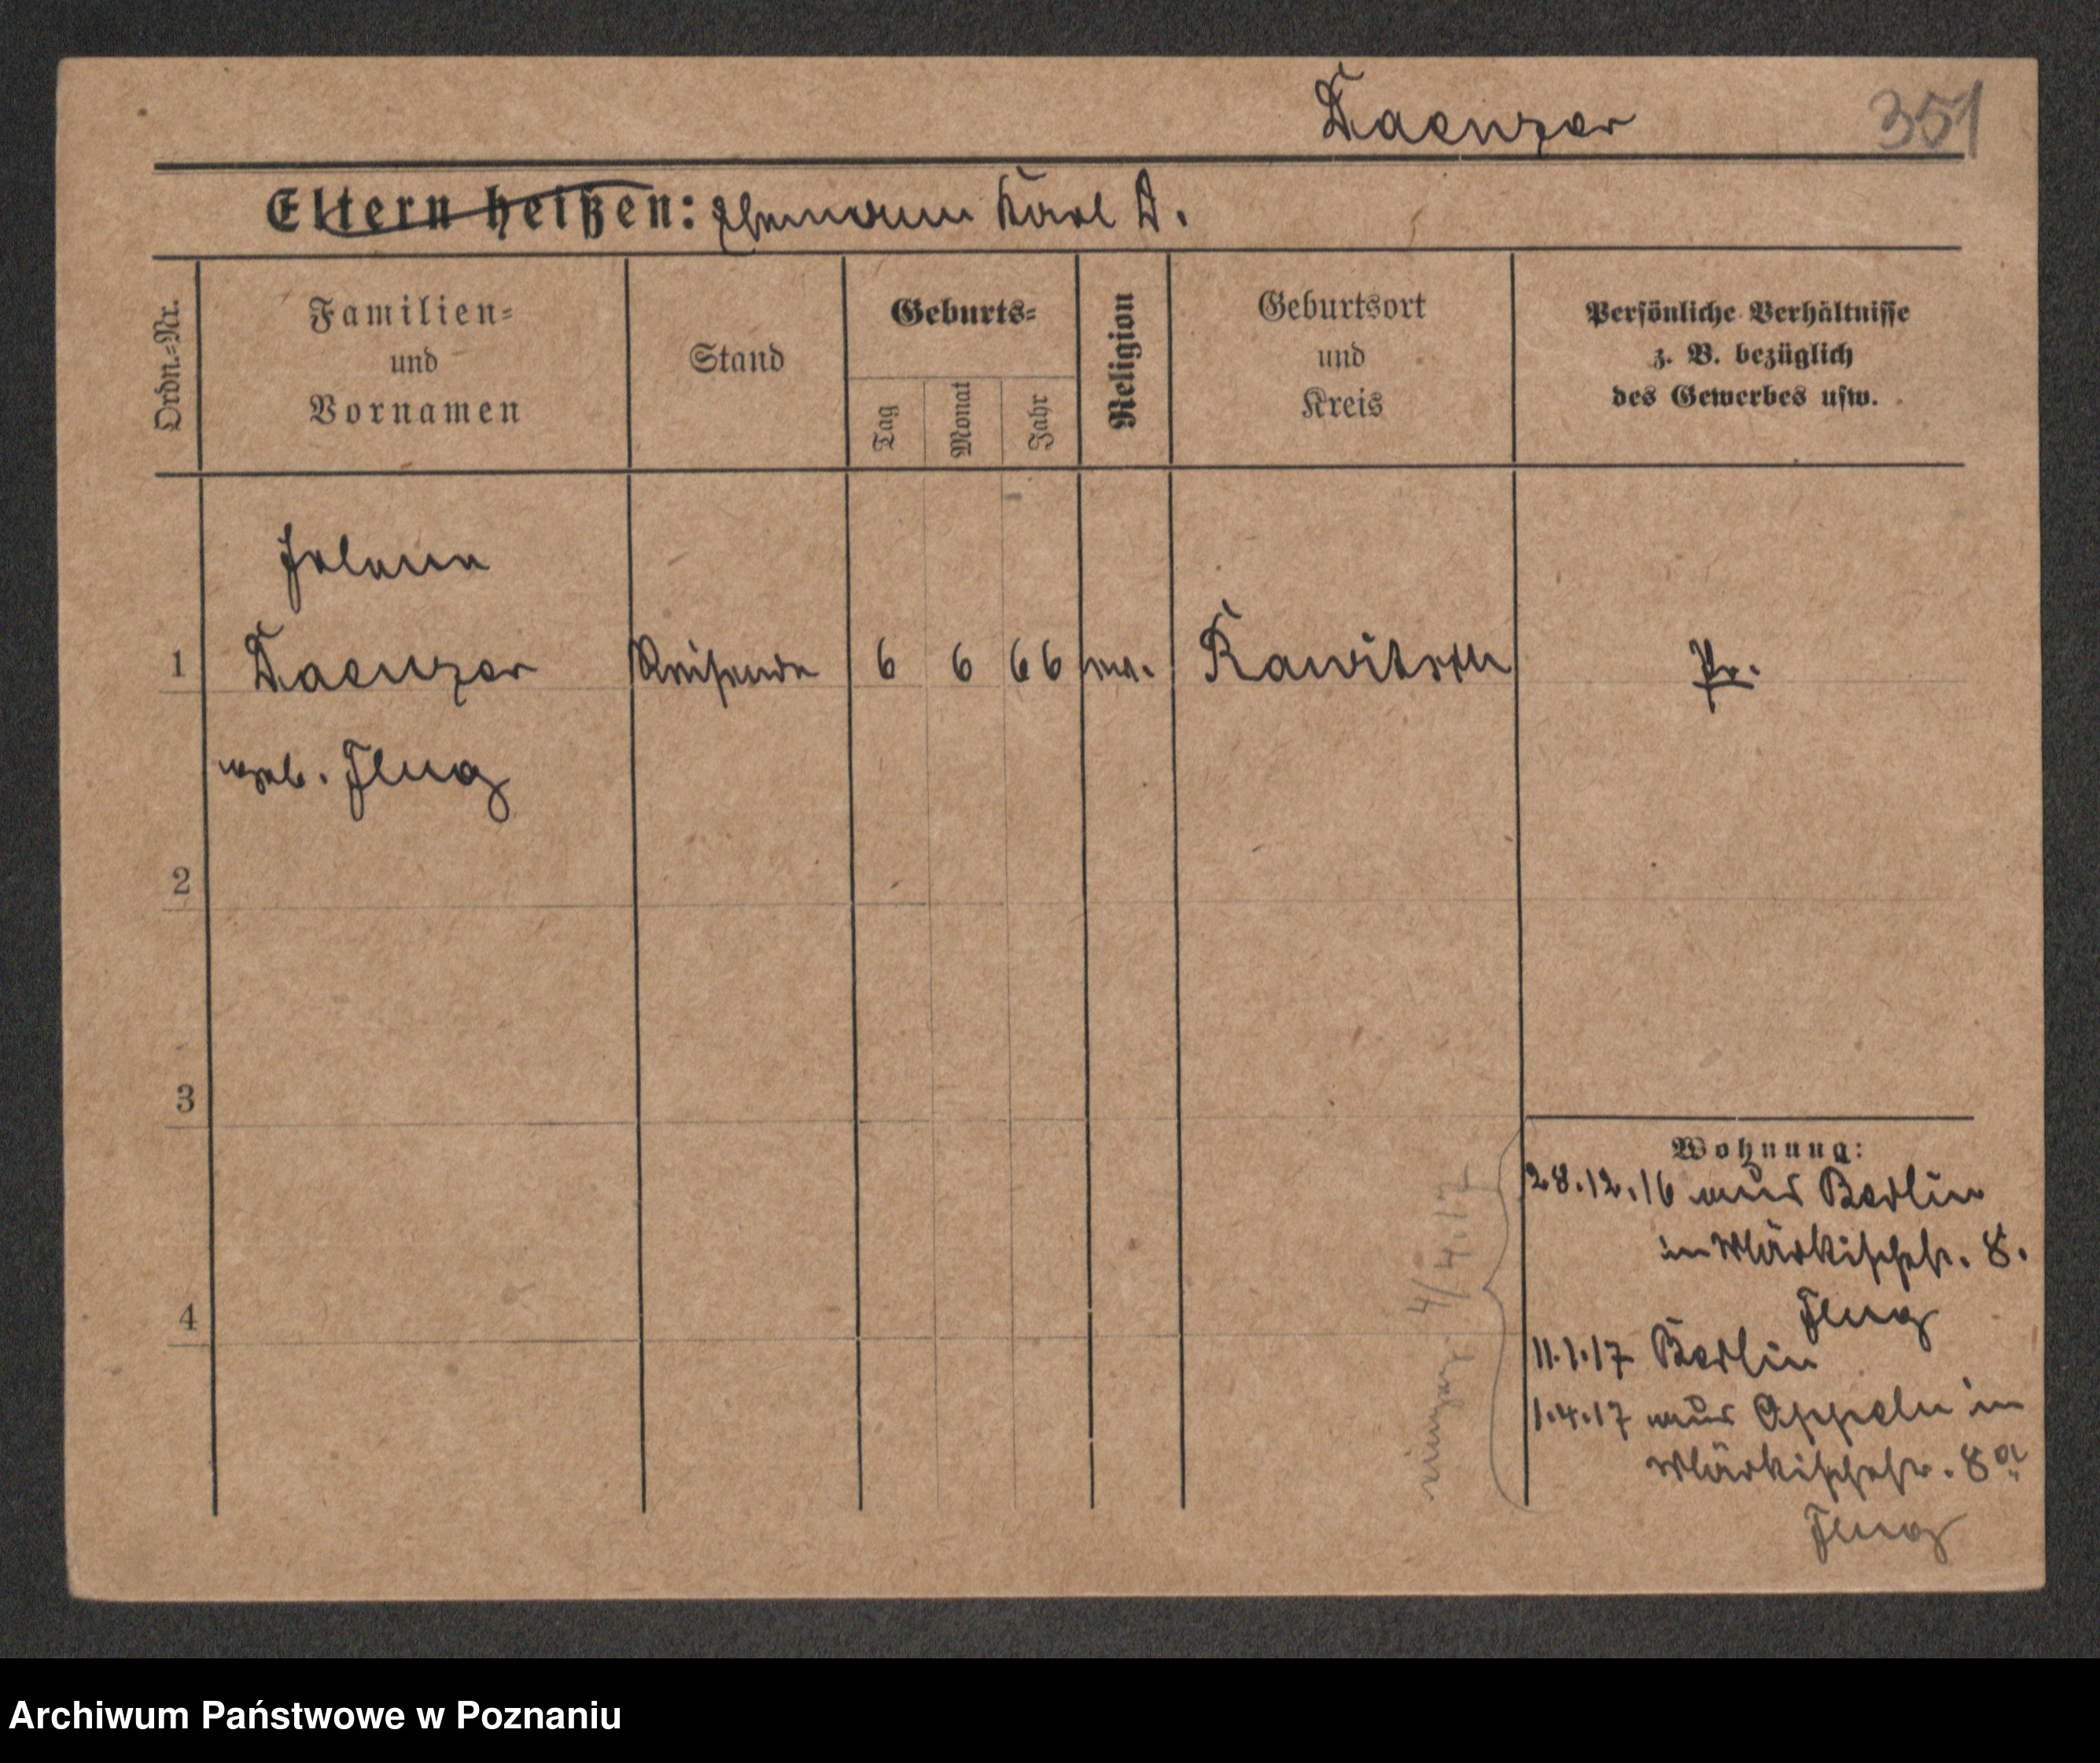 Daenzer 351
Eltern heißen: Ehemann Karl D.
Ordn.-Nr.
Familien-
und
Vornamen
Stand
Geburts-
Tag
Monat
Jahr
Religion
Geburtsort
und
Kreis
Persönliche Verhältnisse
z. B. bezüglich
des Gewerbes usw.
1
Daenzer Reisende 6 6 66 Rawitsch Pr.
geb. Flug
2
3
4
Wohnung:
28.12.16 aus Berlin
in Märkischestr. 8.
Flug
11.1.17 Berlin
1.4.17 aus Oppeln in
Märkischestr. 8a
Flug
4/4.17
Archiwum Państwowe w Poznaniu